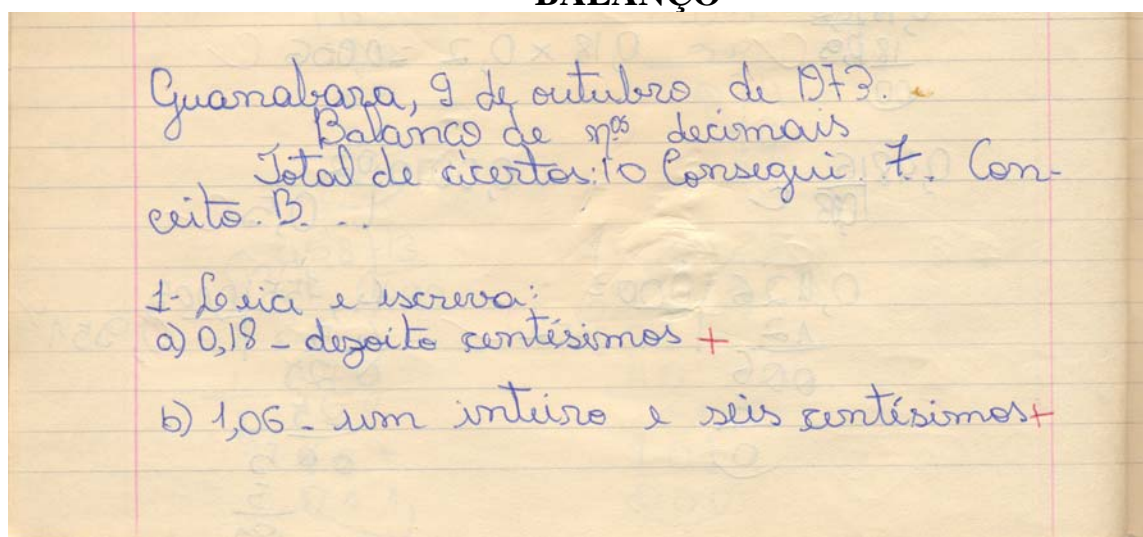 BALANÇO
Guanabara, 9 de outubro de 1973.
Balanço de nºs decimais
Total de acertos: 10 Consegui 7. Con-
ceito. B. . .
1- Leia e escreva:
a) 0,18 - dezoito centésimos +
b) 1,06 - um inteiro e seis centésimos +